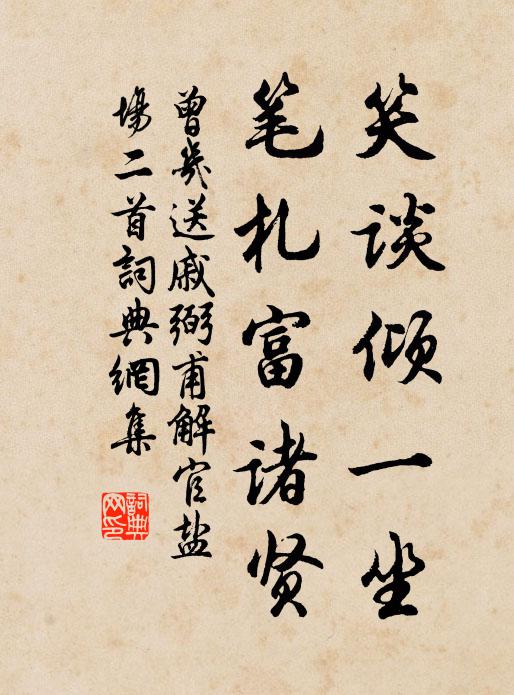 笑谈倾一坐
笔札富诸贤
曾幾送戚弼甫解官盐
場二首詞典網集
詞典网印